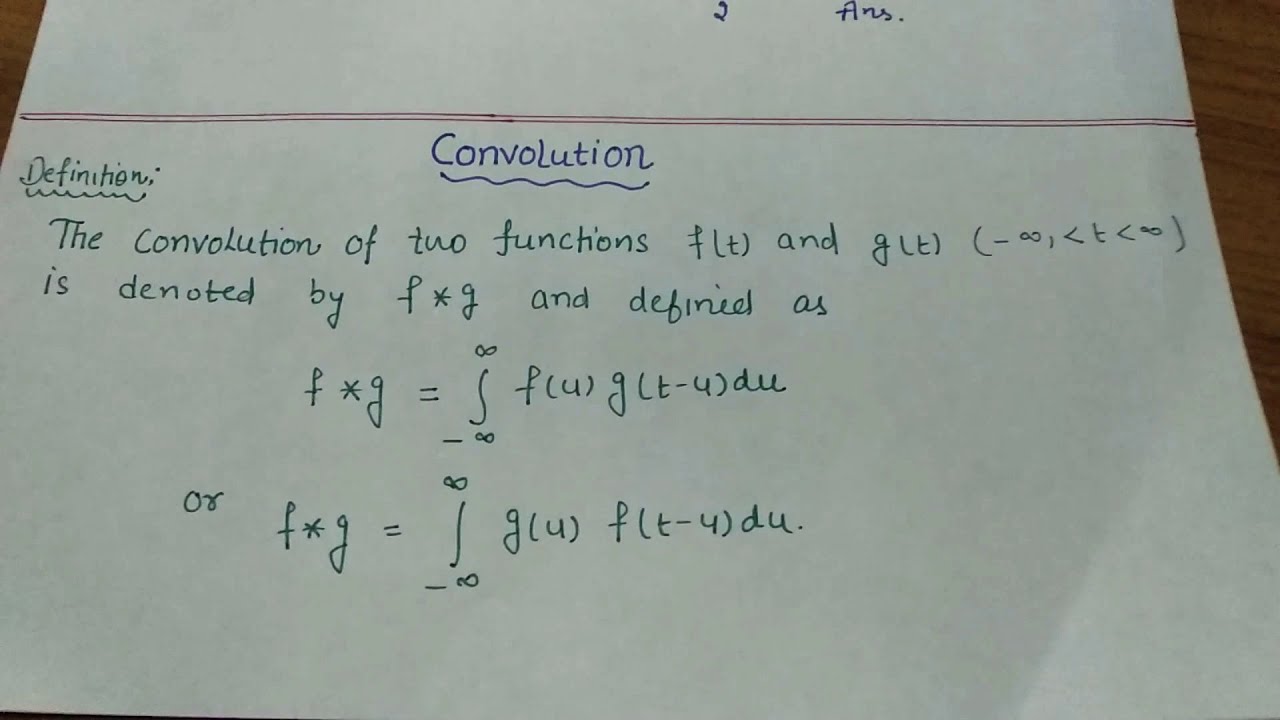 2 Ans.
Convolution
Definition:
The convolution of two functions f(t) and g(t) (-∞, < t < ∞)
is denoted by f * g and defined as
f * g = ∫_{-∞}^{∞} f(u) g(t-u) du
or f * g = ∫_{-∞}^{∞} g(u) f(t-u) du.